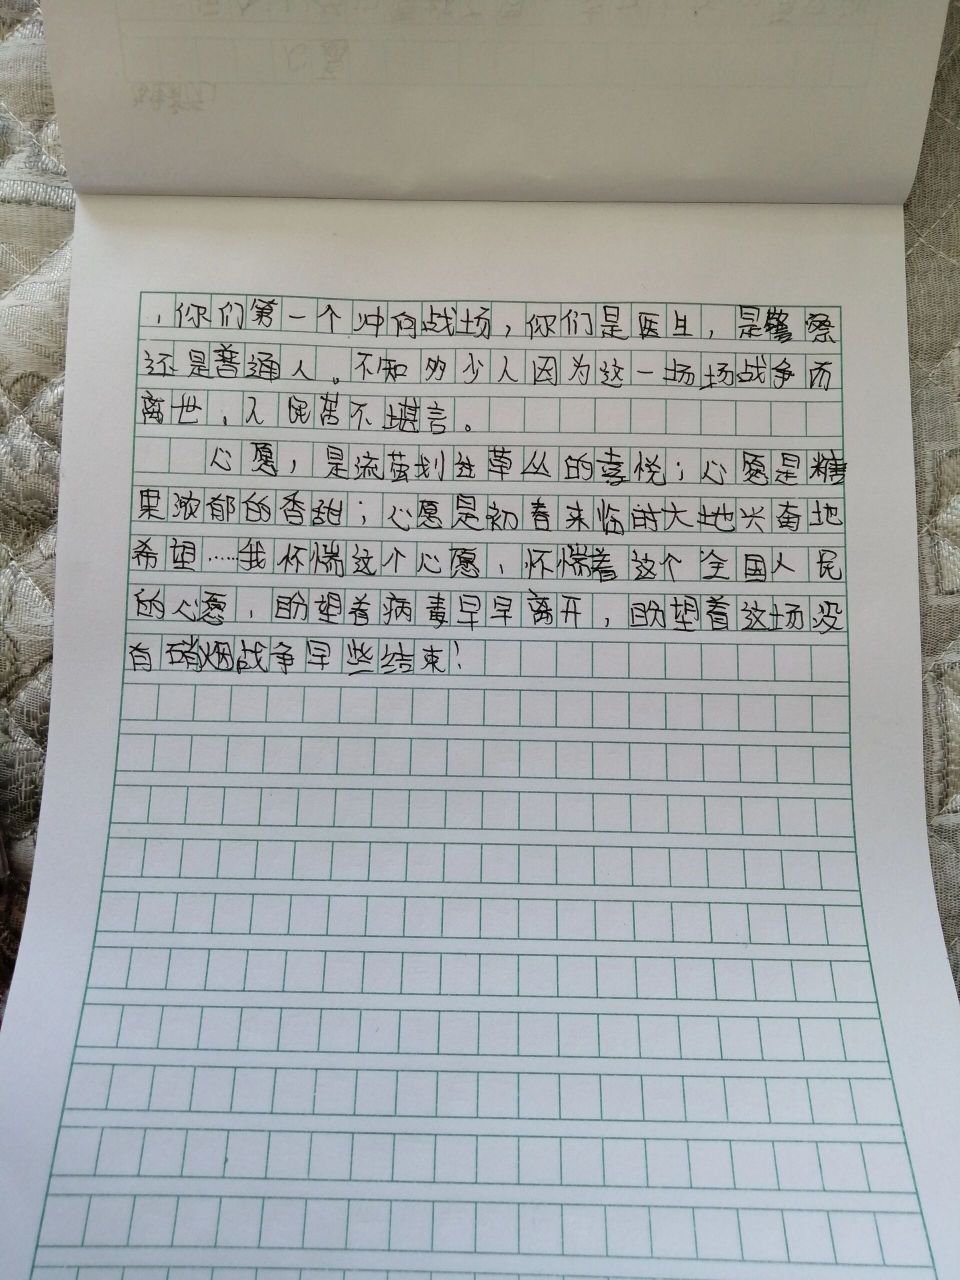 ，你们第一个冲向战场，你们是医生，是警察
还是普通人。不知多少人因为这一场场战争而
离世，人民苦不堪言。
心愿，是流萤划过草丛的喜悦；心愿是糖
果浓郁的香甜；心愿是初春来临时大地兴奋地
希望……我怀惴这个心愿，怀惴着这个全国人民
的心愿，盼望着病毒早早离开，盼望着这场没
有硝烟战争早些结束！